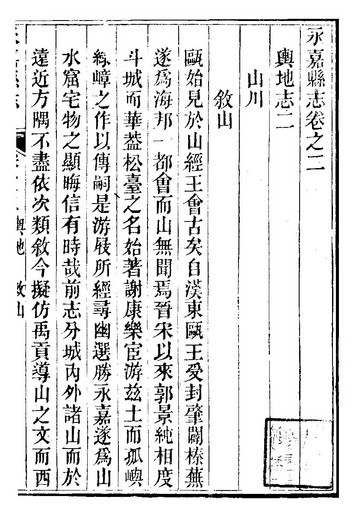 永嘉縣志卷之二
輿地志二
山川
敘山
甌始見於山經王會古矣自漢東甌王受封肇闢榛蕪
遂爲海邦一都會而山無聞焉晉宋以來郭景純相度
斗城而華葢松臺之名始著謝康樂宦游茲土而孤嶼
綠嶂之作以傳嗣是游屐所經尋幽選勝永嘉遂爲山
水窟宅物之顯晦信有時哉前志分城內外諸山而於
遠近方隅不盡依次類敘今擬仿禹貢導山之文而西
輿地
敘山